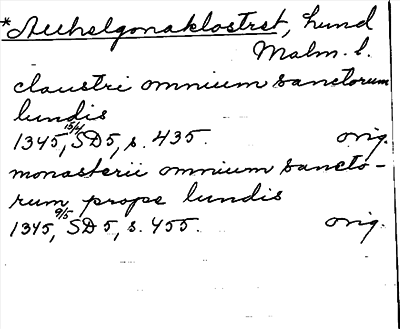 *Allhelgonaklostret, Lund
Malm. l.
claustri omnium sanctorum
lundis
1345 15/4, SD 5, s. 435. orig.
monasterii omnium sancto-
rum prope lundis
1345, 9/5 SD 5, s. 455. orig.